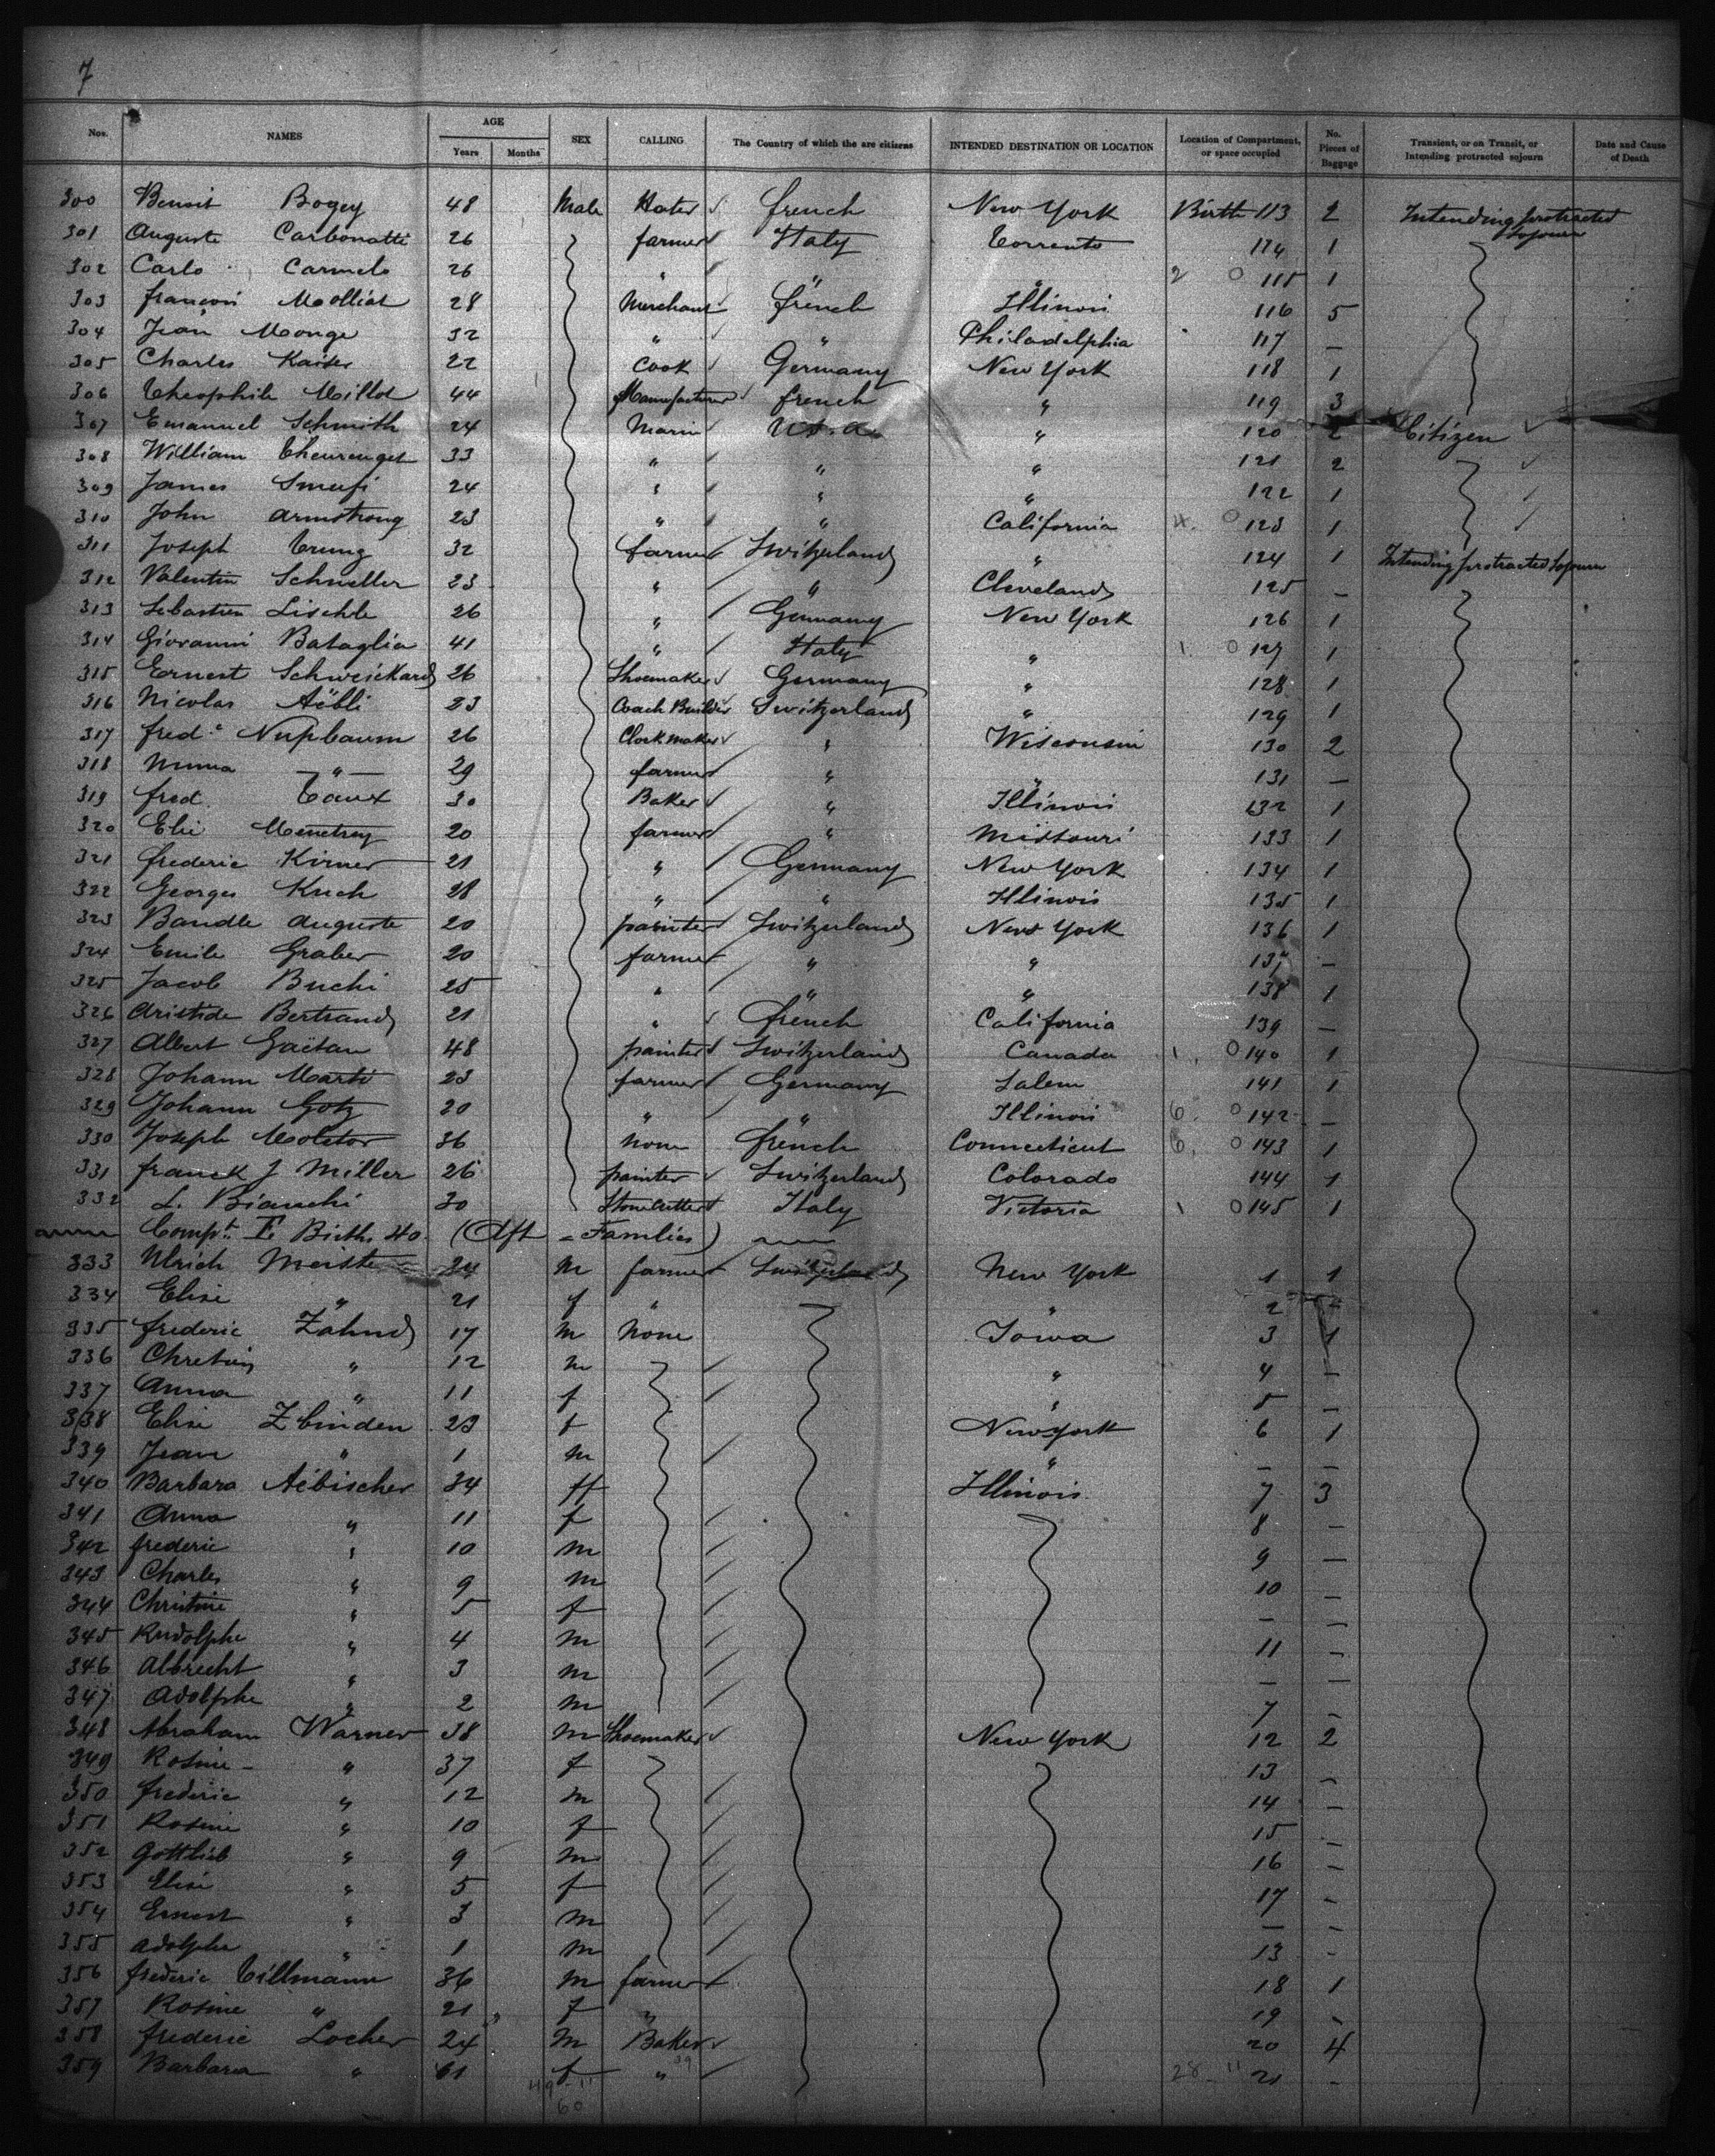 7
Nos. NAMES AGE Years Months SEX CALLING The Country of which the are citizens INTENDED DESTINATION OR LOCATION Location of Compartment, or space occupied No. Pieces of Baggage Transient, or on Transit, or Intending protracted sojourn Date and Cause of Death
300 Benoit Bogey 48 Male Hater french New York Birth 113 2 Intending protracted sojourn
301 Auguste Carbonatti 26 farmer Italy Torrento 114 1
302 Carlo Carmelo 26 " " " 2 0 115 1
303 françois Molliat 28 Merchant french Illinois 116 5
304 Jean Monge 32 " " Philadelphia 117 —
305 Charles Kaiser 22 Cook Germany New York 118 1
306 Theophile Millot 44 Manufacturer french " 119 3
307 Emanuel Schmith 24 Marin U.S.a. " 120 2 Citizen
308 William 33 " " " 121 2
309 James 24 " " " 122 1
310 John Armstrong 23 " " California 4. 0 123 1
311 Joseph 32 farmer Switzerland " 124 1 Intending protracted Sojourn
312 Valentin Schneller 23 " " Cleveland 125 —
313 Sebastien Lischle 26 " Germany New York 126 1
314 Giovanni Bataglia 41 " Italy " 1. 0 127 1
315 Ernest Schweickard 26 Shoemaker Germany " 128 1
316 Nicolas Aëbli 23 Coach Builder Switzerland " 129 1
317 fred.c Nupbaum 26 Clockmaker " Wisconsin 130 2
318 Numa — " — 29 farmer " " 131 —
319 fred. Taux 30 Baker " Illinois 132 1
320 Elie Menetrey 20 farmer " Missouri 133 1
321 frederic Kirner 21 " Germany New York 134 1
322 Georges Kuch 28 " " Illinois 135 1
323 Bandle Auguste 20 painter Switzerland New York 136 1
324 Emile Graber 20 farmer " " 137 —
325 Jacob Buchi 25 " " " 138 1
326 Aristide Bertrand 21 " french California 139 —
327 Albert Gaëtan 48 painter Switzerland Canada 1. 0 140 1
328 Johann Marti 23 farmer Germany Salem 141 1
329 Johann Gotz 20 " " Illinois 6. 0 142 —
330 Joseph Molitor 36 None french Connecticut 6. 0 143 1
331 franck J Miller 26 painter Switzerland Colorado 144 1
332 L. Bianchi 30 Stonecutter Italy Victoria 1 0 145 1
Compt. E. Births 40. (Aft = Families)
333 Ulrich Meister 24 m farmer Switzerland New York 1 1
334 Elise " 21 f " " 2 —
335 frederic Zahnd 17 m None Iowa 3 1
336 Chretien " 12 m " 4 —
337 Anna " 11 f " 5 —
338 Elise Zbinden 23 f New York 6 1
339 Jean " 1 m " — —
340 Barbara Aëbischer 34 f Illinois 7 3
341 Anna " 11 f 8 —
342 frederic " 10 m 9 —
343 Charles " 9 m 10 —
344 Christine " 5 f — —
345 Rudolphe " 4 m 11 —
346 Albrecht " 3 m — —
347 Adolphe " 2 m 7 —
348 Abraham Warner 38 m Shoemaker New York 12 2
349 Rosine " 37 f 13 —
350 frederic " 12 m 14 —
351 Rosine " 10 f 15 —
352 Gottlieb " 9 m 16 —
353 Elise " 5 f 17 —
354 Ernest " 3 m — —
355 Adolphe " 1 m 13 —
356 frederic Tillmann 36 m farmer 18 1
357 Rosine " 21 f " 19 —
358 frederic Locher 24 m Baker 20 4
359 Barbara " 61 f " 28 – 11 21 —
49 – 11
60